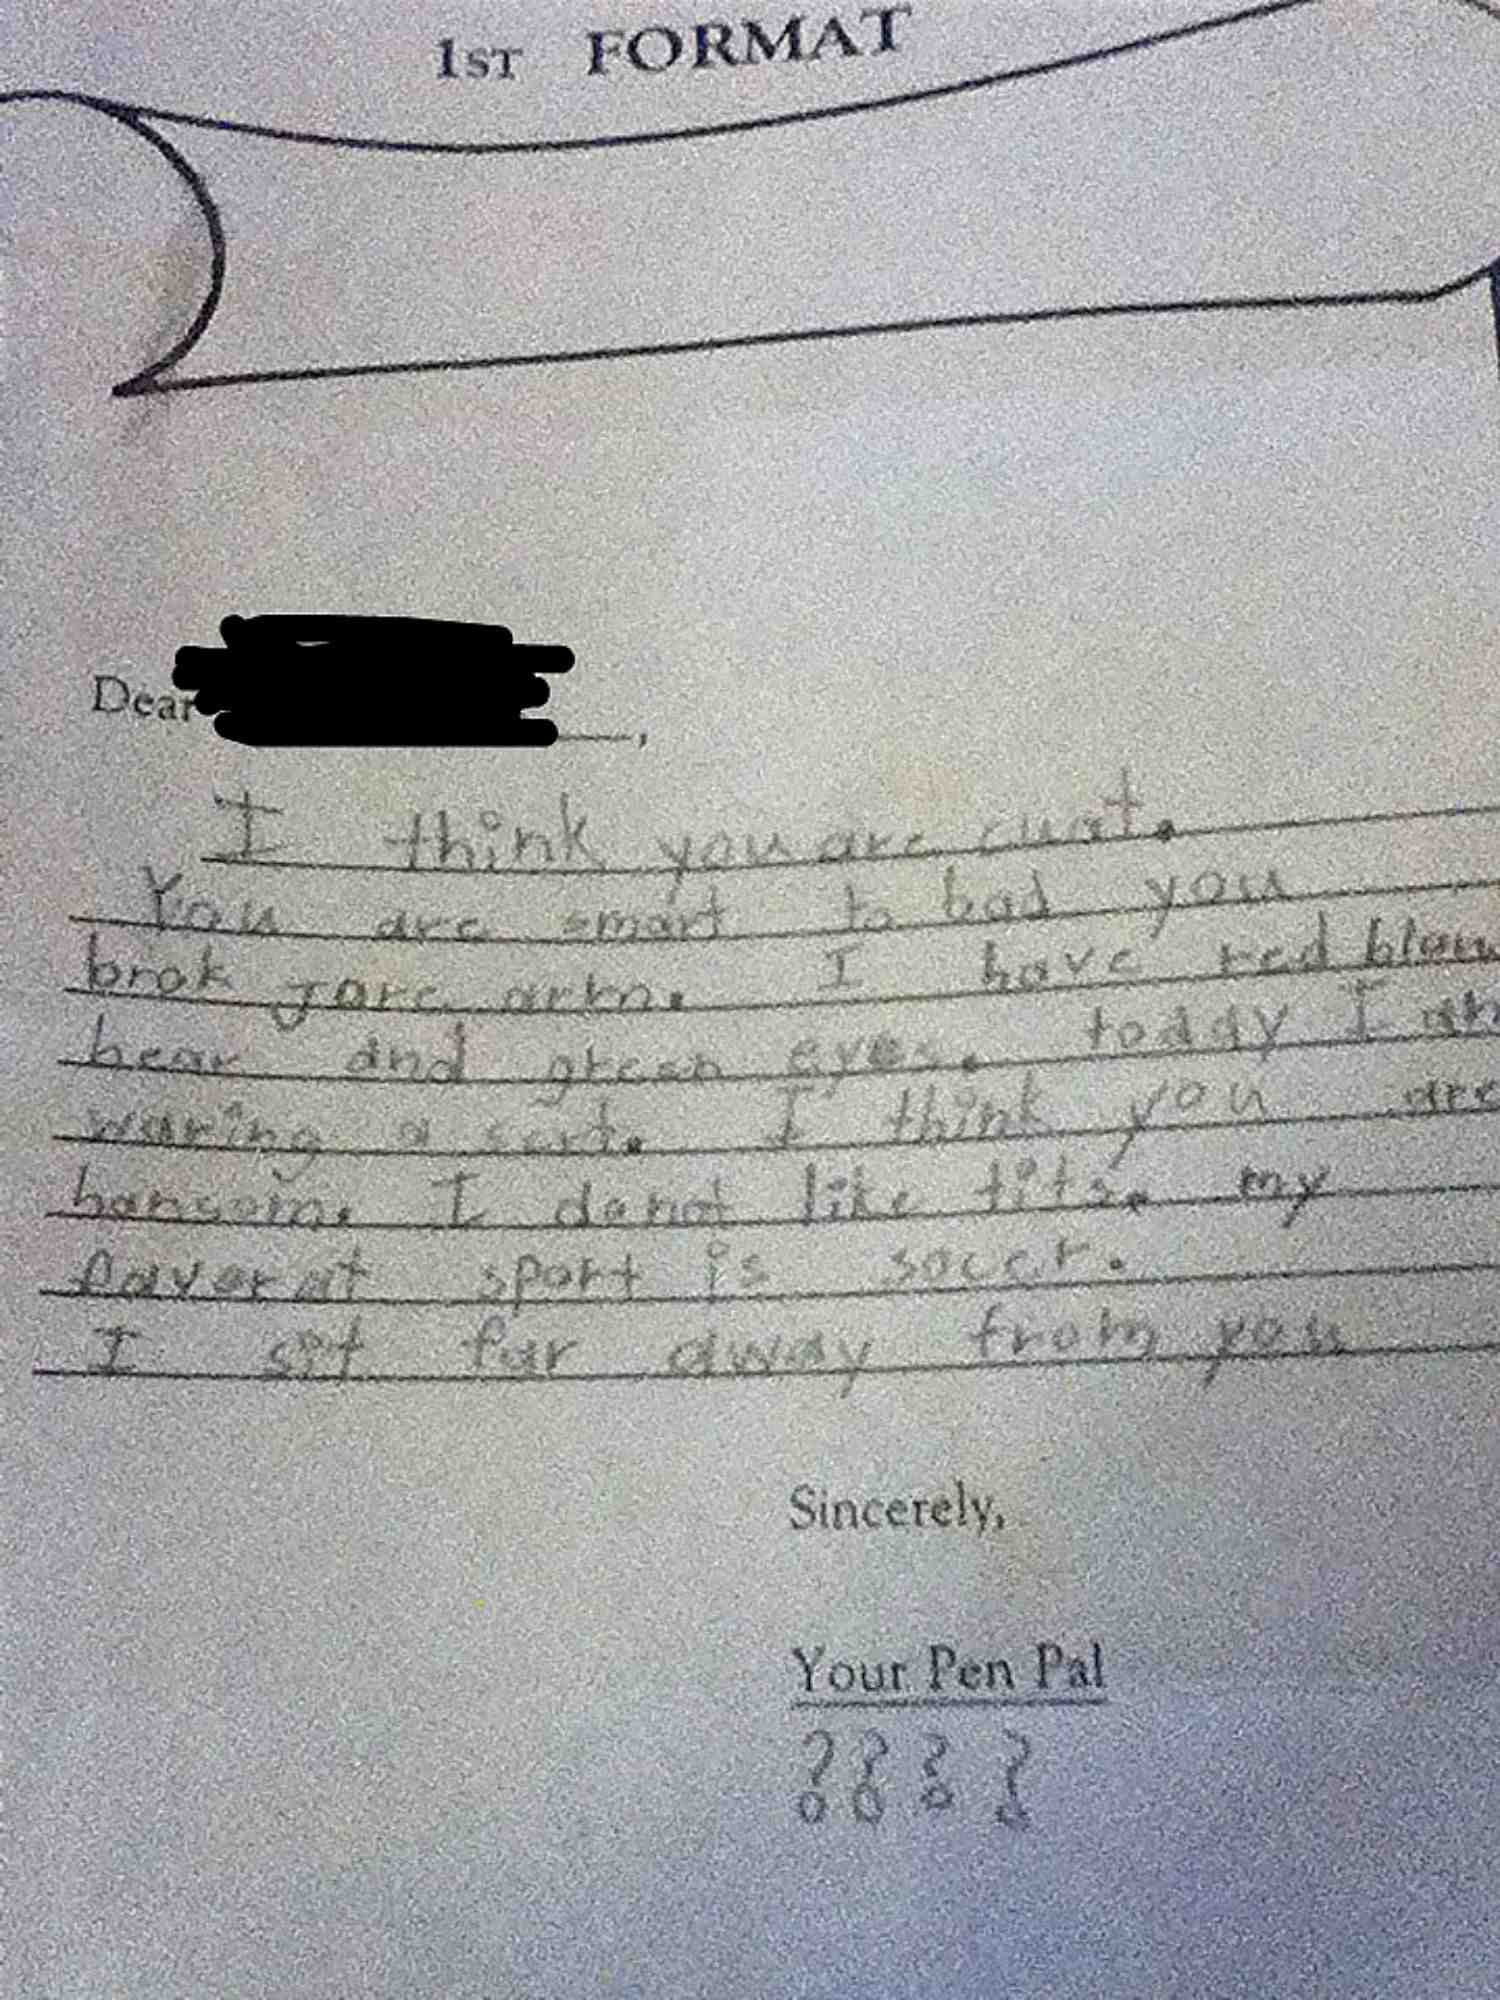 1ST FORMAT
Dear ,
I think you are cuat.
You are smart to bad you
brok yore arm. I have red blown
hear and green eyes. today I am
waring a scrt. I think you are
hansom. I donot like tits. my
faverat sport is soccer.
I sit fur away from you
Sincerely,
Your Pen Pal
????